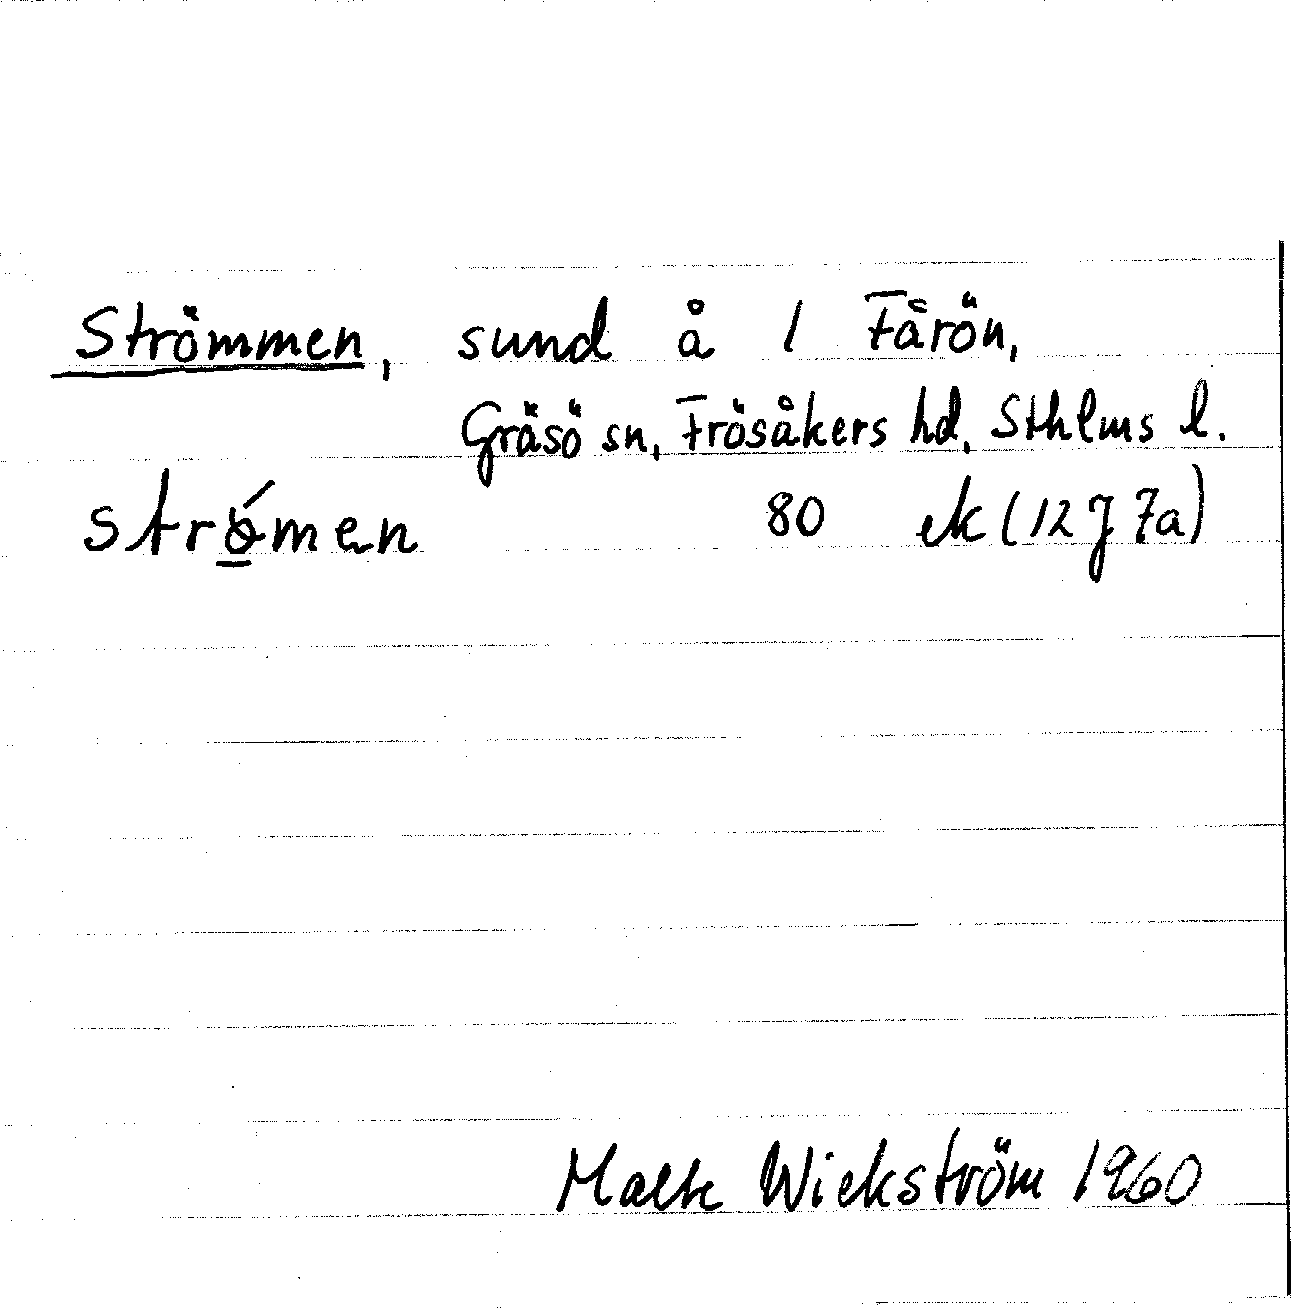 Strömmen, sund å 1 Fårön,
Gräsö sn, Frösåkers hd, Sthlms l.
strömen 80 ek (12 J 7a)
Malte Wickström 1960